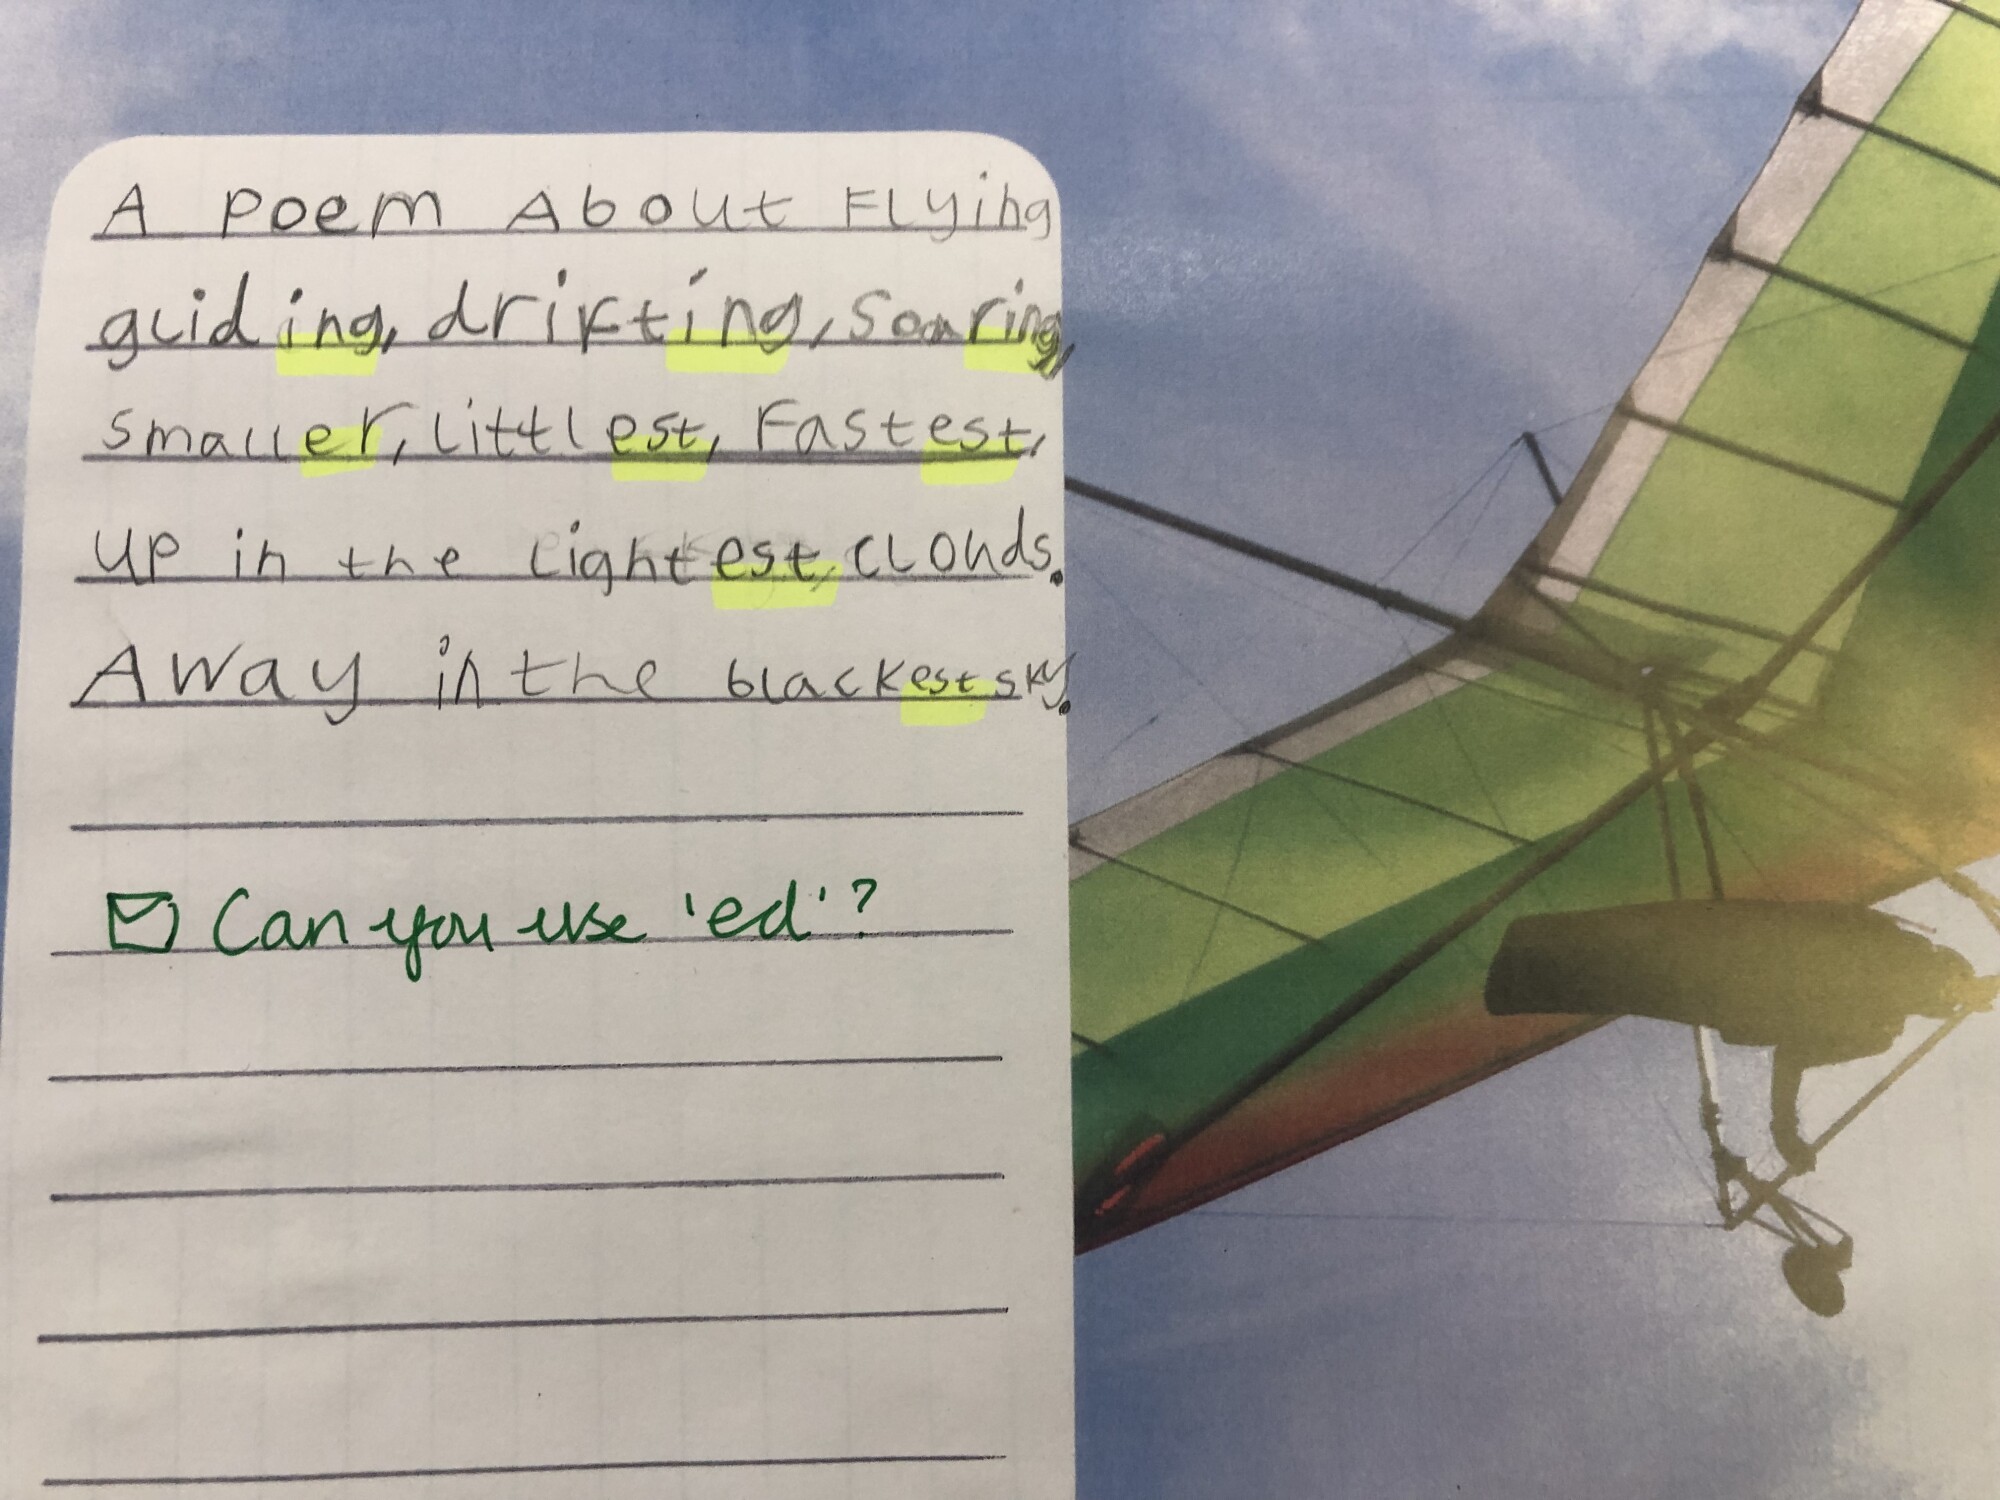 A Poem About Flying
gliding, drifting, Soaring,
smaller, littlest, Fastest,
up in the lightest clouds.
Away in the blackest sky.
Can you use 'ed'?